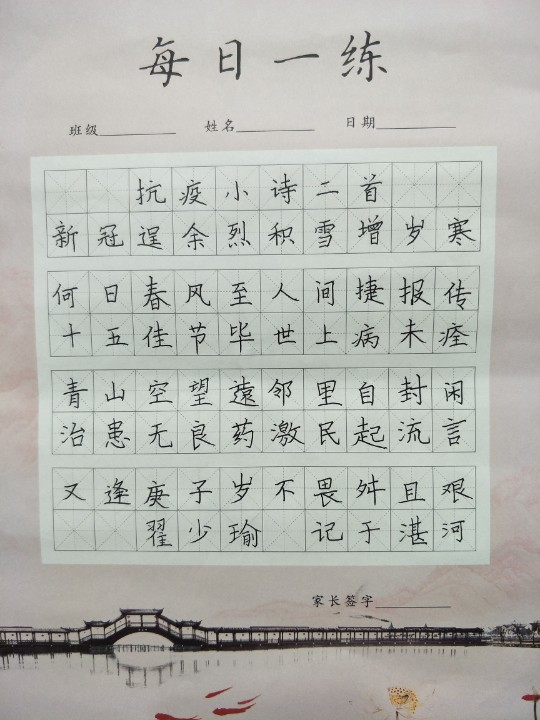 每日一练
班级 姓名 日期
抗疫小诗二首
新冠逞余烈积雪增岁寒
何日春风至人间捷报传
十五佳节毕世上病未痊
青山空望遠邻里自封闲
治患无良药激民起流言
又逢庚子岁不畏舛且艰
翟少瑜 记于湛河
家长签字